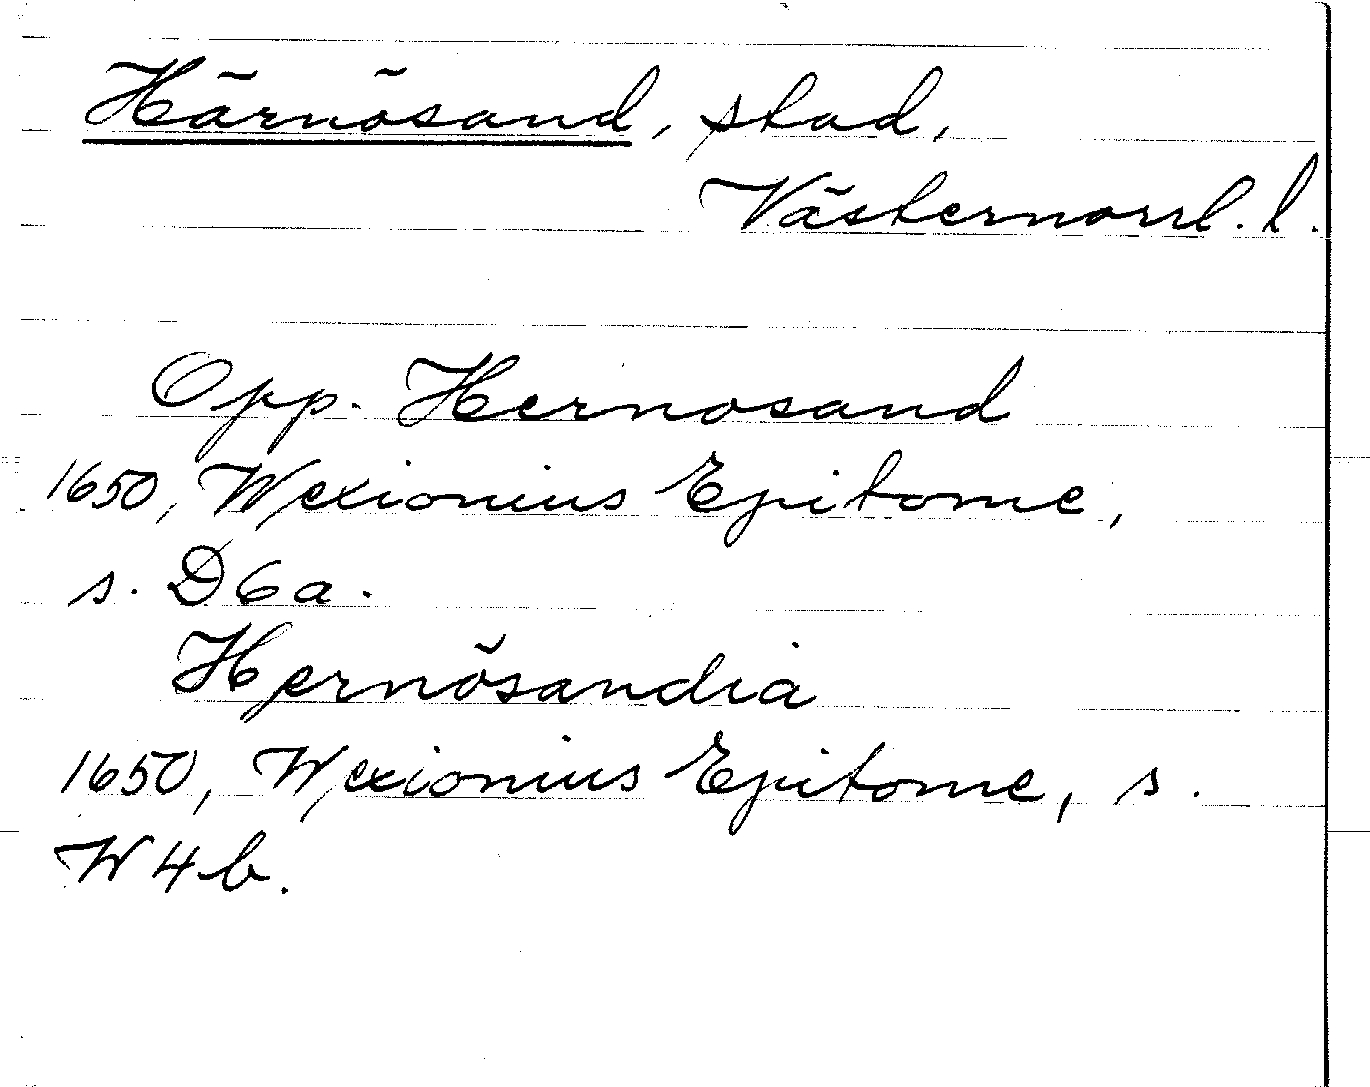 Härnösand, stad,
Västernorrl. l.
Opp. Hernosand
1650, Wexionius Epitome,
s. D6a.
Hernösandia
1650, Wexionius Epitome, s.
W4b.